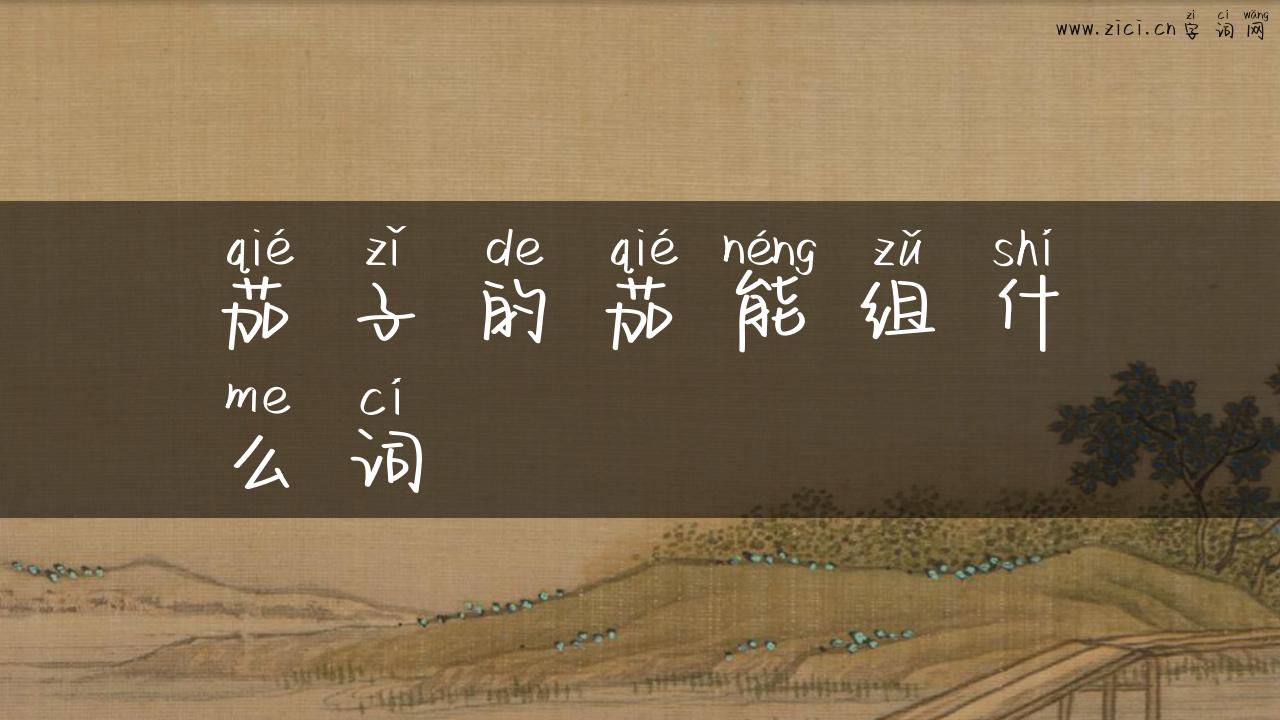 zì cí wǎng
www.zici.cn 字词网
qié zǐ de qié néng zǔ shí
茄子的茄能组什
me cí
么词